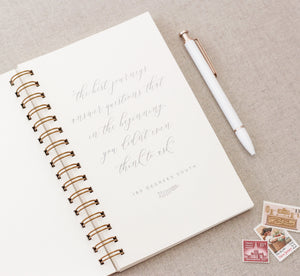 the best journeys
answer questions that
in the beginning
you didn't even
think to ask
180 DEGREES SOUTH